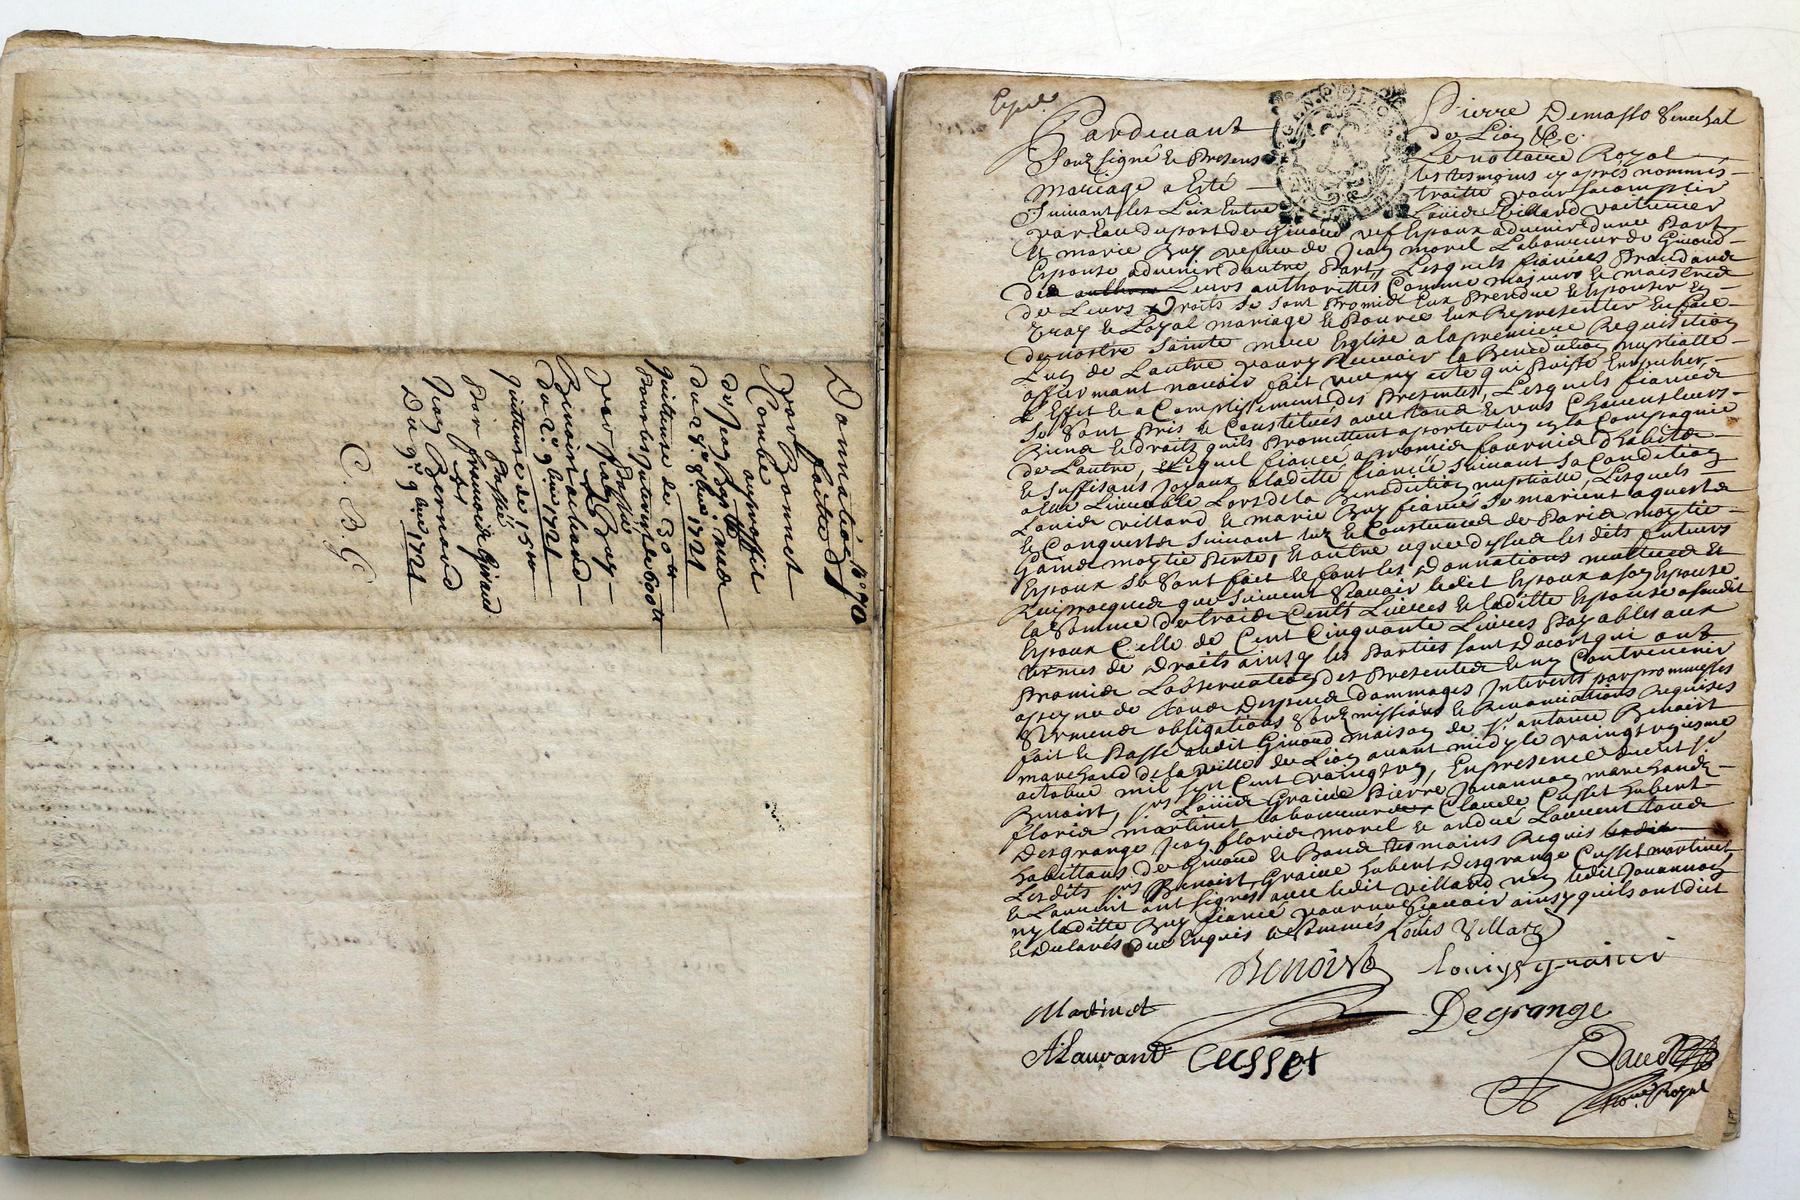 No 90
Donnation
faitte
par Bonnet
Combe
au proffit
de Jean Bap.te aude
du 28e 8bre 1721
quittance de 30 tt
Passé
Benoin achand
du 2e 9bre 1721
quittance de 15 tt
Passé
par francois Giraud
à
Jean Bernard
Du 9e 9bre 1721
C. B. G
Expié
Pardevant Pierre Demasso Senechal
de Lion &c.
Souz signé & Presens Le nottaire Royal
les tesmoins cy aprés nommés
Mariage a Esté traitté pour sacomplir
Suivant les Loix Entre Loüis Villard voiturier
par Eau du port de Givord vef Espoux advenir dune Part
Et marie Buy vefue de Jean morel Laboureur de Givord
Espouse advenir dautre Part, Lesquels fiancés
de Leurs authorittés Comme majeurs & maistres
de Leurs Droits se sont Promis Eux Prendre & Espouser En
vray & Loyal mariage & Pource Eux Representer En face
de nostre Sainte mere Eglise a la premiere Requisition
Lun de Lautre pour y Recevoir la Benediction nuptialle
affirmant navoir fait rien ny acte qui Puisse Empescher
L'Effet & aComplissement des Presentes, Lesquels fiancés
Se Sont Pris & Constitués avec tous & uns Chacuns Leurs
Biens & droits quils Promettent aporter Lun en la Compagnie
de Lautre, Lequel fiancé a promis fournir d'habits
& suffisans Joyaux a laditte fiancée suivant sa Condition
a Elle Livrable Lors de la Benediction nuptialle, Lesquels
Loüis villard & marie Buy fiancés se marient aquests
& Conquests Suivant Luz & Coustume de Paris moytié
Gain moytié Perte, Et outre ce que dessus les dits futurs
Espoux se Sont fait & font les Donnations mutuelles Et
Reciproques que Suivent Scavoir ledit Espoux a son Espouse
la Somme de trois Cents Livres & laditte Espouse a sondit
Espoux Celle de Cent Cinquante Livres Payables aux
termes de Droits ainsy les Parties sont Dacort qui ont
Promis Lobservation Des Presentes & ny Contrevenir
a peyne de tous Despens Dommages Interests par promesses
Serments obligations Soubzmissions & Renonciations Requises
fait & Passé audit Givord maison de Sr antoine Benoist
marchand de la ville de Lion avant midy le vaingt
octobre mil Sept Cent vaingt un, En presence dudit Sr
Benoist, Srs Loüis Graine Pierre Jouannon marchands
floris martinet laboureur Claude Cusset hubert
Desgrange Jean floris morel & andré Laurent tous
habittans de Givord & Bans tesmoins Requis
Lesdits Srs Benoist, Graine hubert Desgrange Cusset martinet
& Laurent ont signés avec ledit villard non ledit Jouannon
ny laditte Buy fiancée pour ne Scavoir ainsy quils ont dit
& declarés due Enquis & Sommés Louis Villard
Benoist Louys grainé
Martinet Degrange
A Laurant Cusset
Baud
Nore Royal